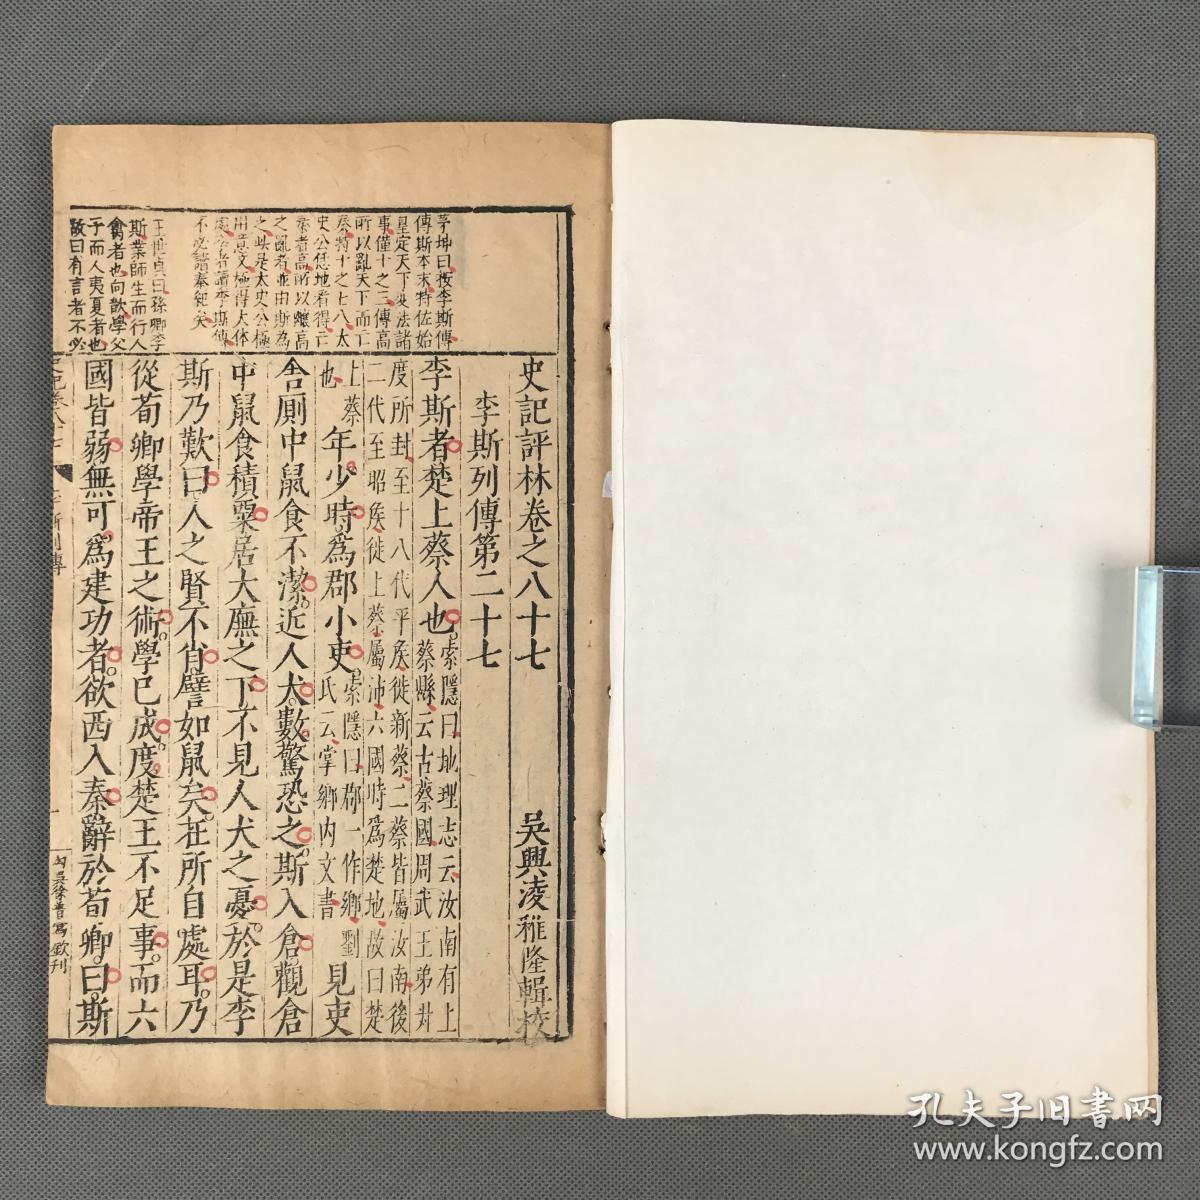 史記評林卷之八十七
吳興凌稚隆輯校
李斯列傳第二十七
李斯者楚上蔡人也索隱曰地理志云汝南有上
蔡縣云古蔡國周武王弟
度所封至十八代平侯徙新蔡二蔡皆屬汝南後
二代至昭侯徙上蔡屬沛六國時爲楚地故曰楚
上蔡
也
年少時爲郡小吏索隱曰郡一作鄉劉
氏云掌鄉內文書
見吏
舍厠中鼠食不潔近人犬數驚恐之斯入倉觀倉
中鼠食積粟居大廡之下不見人犬之憂於是李
斯乃歎曰人之賢不肖譬如鼠矣在所自處耳乃
從荀卿學帝王之術學已成度楚王不足事而六
國皆弱無可爲建功者欲西入秦辭於荀卿曰斯
茅坤曰按李斯傳
傳斯本末特佐始
皇定天下變法諸
事僅十之三傳高
所以亂天下而亡
秦特十之七八太
史公恁地看得亡
秦者高所以釀高
之亂者並由斯爲
之此是太史公極
用意文極得大体
處學者讀李斯傳
不必讀秦紀矣
王世貞曰孫卿李
斯業師生而行人
禽者也向歆學父
子而人夷夏者也
故曰有言者不必
史記卷八十七
李斯列傳
一
勾吳徐普寫 欽刊
孔夫子旧書网
www.kongfz.com